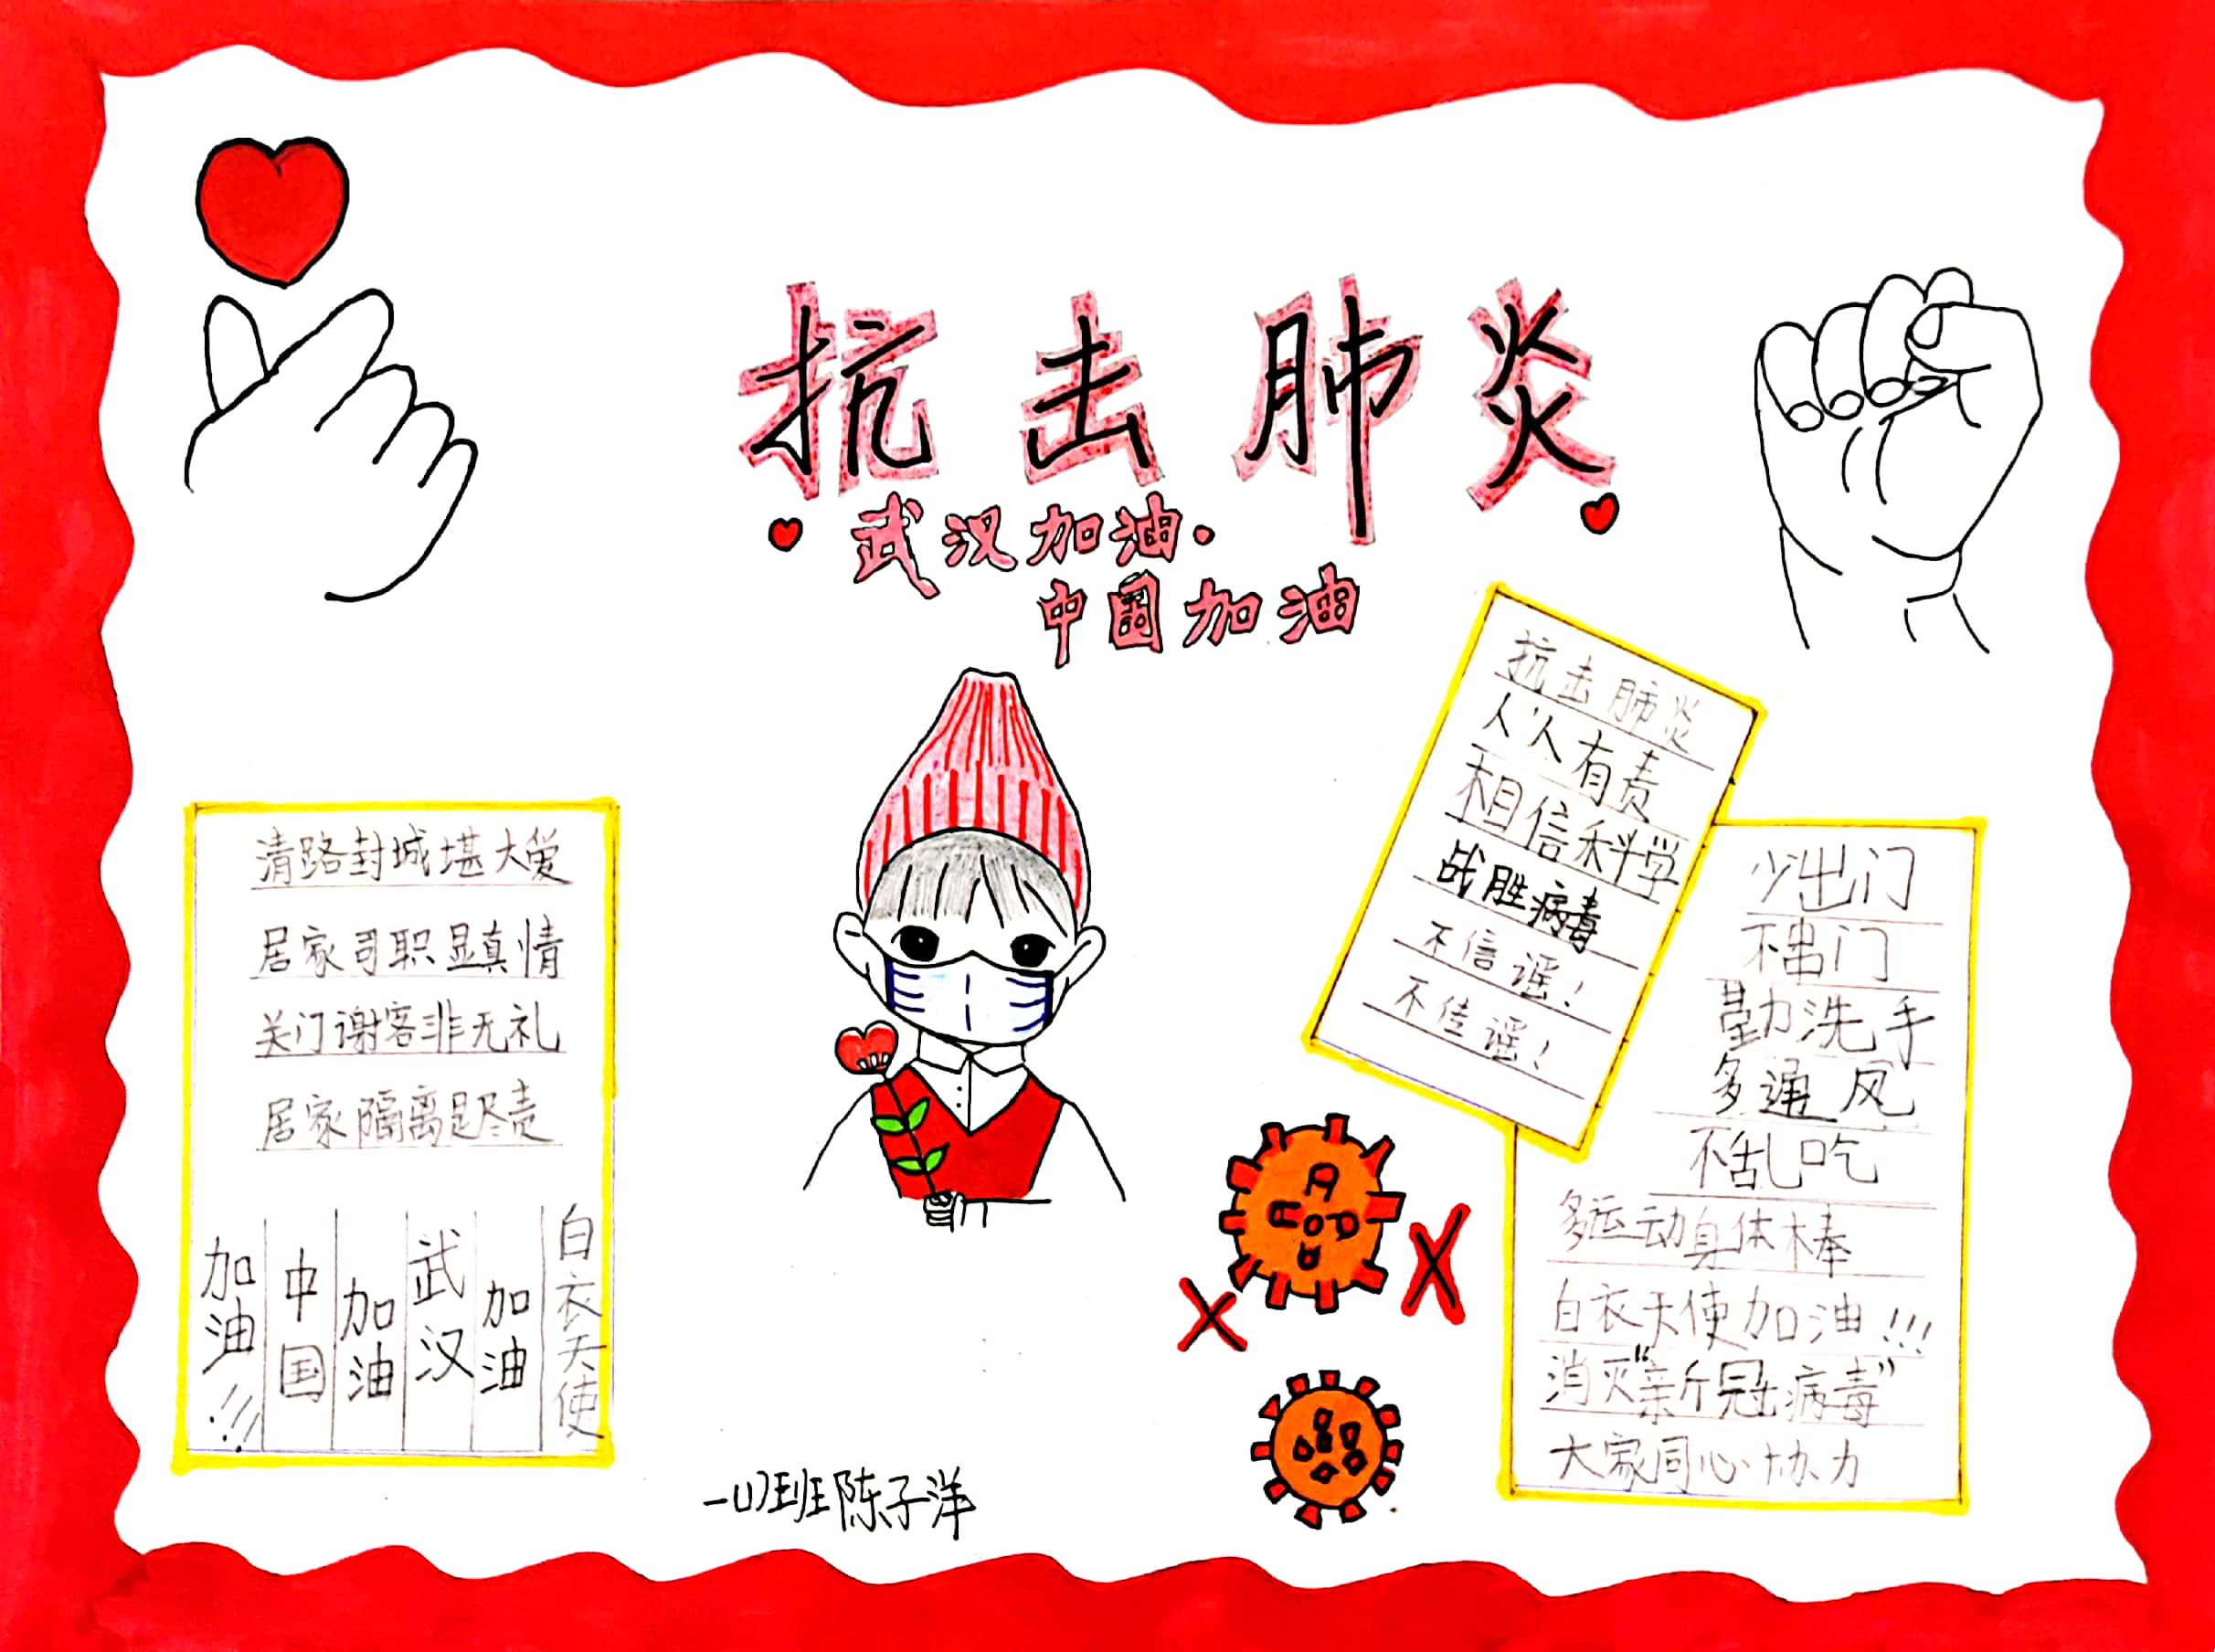 抗击肺炎
武汉加油.
中国加油
清路封城堪大爱
居家司职显真情
关门谢客非无礼
居家隔离是尽责
白衣天使
加油
武汉
加油
中国
加油!!!
抗击肺炎
人人有责
相信科学
战胜病毒
不信谣！
不佳谣！
少出门
不串门
勤洗手
多通风
不乱吃
多运动身体棒
白衣天使加油!!!
消灭“新冠病毒”
大家同心协力
班陈子洋